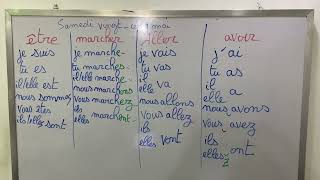 Samedi vingt - mai
être marcher Aller avoir
je suis
tu es
il/elle est
nous sommes
vous êtes
ils/elles sont
je marche-
tu marches-
il/elle marche-
nous marchons
vous marchez
ils
elles marchent-
je vais
tu vas
il va
elle
nous allons
vous allez
ils
elles vont
j'ai
tu as
il a
elle
nous avons
vous avez
ils ont
elles
z